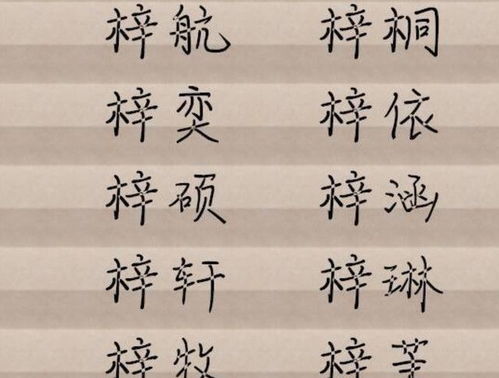 梓航 梓桐
梓奕 梓依
梓硕 梓涵
梓轩 梓琳
梓牧 梓